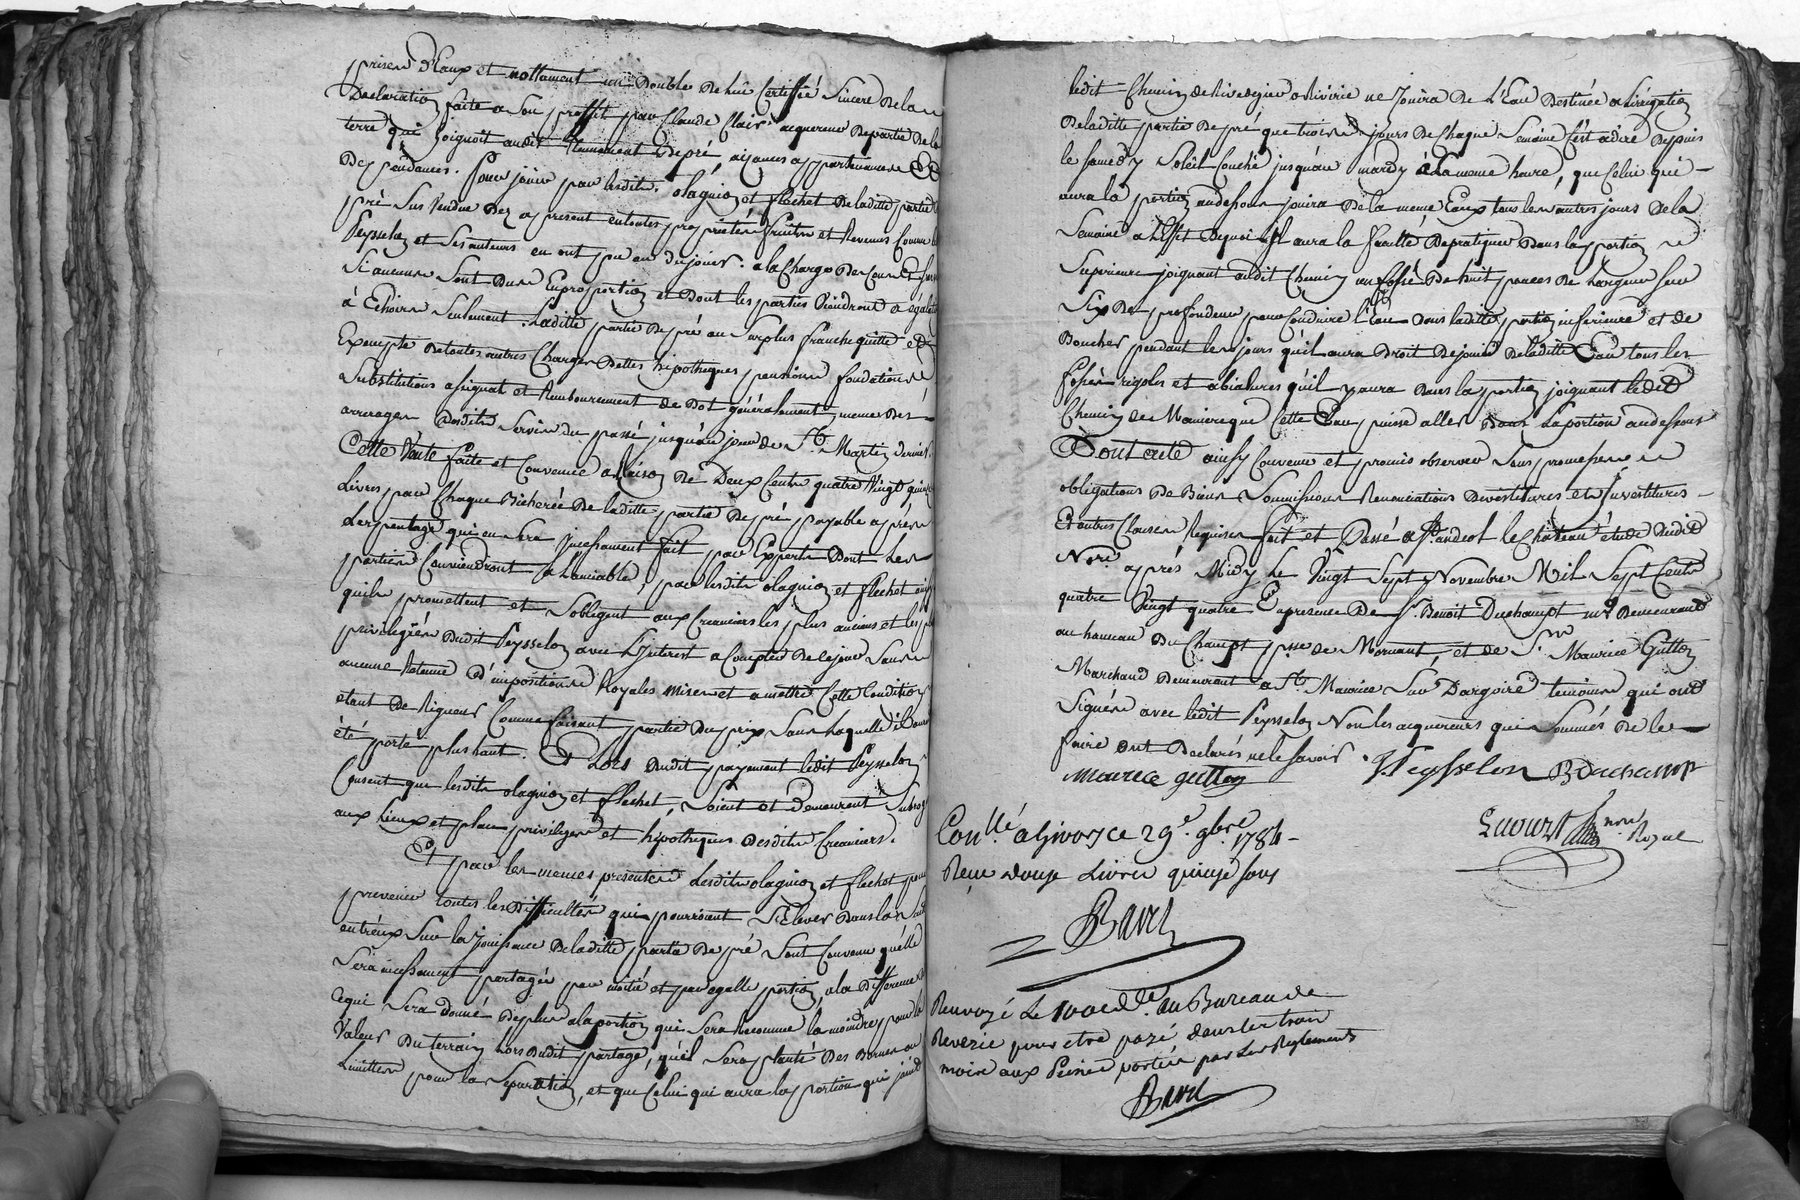 prises d'Eaux et nottament un Double de lui Certiffié Sincere dela
Declaration faite a Son proffit par Claude Clair acquereur De partie De la
terre qui joignoit audit tennement De pré, aisances appartenances Et
Dependances. Pour jouir par lesdits olagnion et flechet De laditte partie
pré Sus Vendue Dez a present en toutes proprietés fruits et Revenus Comme led
Peysselon et Ses auteurs en ont pu ou du jouir. a la Charge De Cens et
Si aucuns Sont Dus En proportion et Dont les parties viendront a égalité
à Echoir Seulement. Laditte partie De pré au Surplus franche quitte et
Exempte De toutes autres Charges Dettes hipotheques pensions fondations
Substitutions assignat et Remboursement de Dot généralement, meme Des
arrerages Desdits Servis du passé jusqu'au jour de St. Martin dernier.
Cette Vente faite et Convenue a Raison De Deux Cents quatre Vingt quinze
Livres par Chaque Bicherée De laditte partie De pré payable après
Lerpentage qui en Sera Incessament fait par Experts Dont les
parties Conviendront a Lamiable, par lesdits olagnion et flechet ainsy
quils promettent et Sobligent aux Creanciers les plus anciens et les plus
privilegiés Dudit Peysselon avec Linterest a Compter De Ce jour Sans
aucune Retenue d'impositions Royales mises et a mettre Cette Condition
etant De Rigueur Comme faisant partie Du prix Sans Laquelle il auroit
été porté plus haut. Et Lors Dudit payement ledit Peysselon
Consent que lesdits olagnion et flechet, Soient et Demeurent Subrogés
aux Lieux et place privileges et hipotheques Desdits Creanciers.
Et par les memes presentes Lesdits olagnion et flechet pour
prevenir toutes les Difficultés qui pourroient S'Elever Dans la Suite
entr'eux Sur la Jouissance De laditte partie De pré Sont Convenu qu'elle
Sera incessament partagée par moitié et par egalle portion, a la Difference de
Ce qui Sera Donné De plus a la portion qui Sera Reconnue la moindre, pour la
Valeur Du terrain hors Dudit partage, quil Sera planté Des Bornes ou
Limittes pour la Separation, et que Celui qui aura la portion qui joint
ledit Chemin de Rivedegier a Riverie ne Jouira De L'Eau Destinée a L'irrigation
De laditte partie De pré que trois jours De Chaque Semaine C'est a dire Depuis
le Samedy Soleil Couché jusqu'au mardy à La meme heure, que Celui qui
aura la portion audessous jouira De la meme Eaux tous les autres jours De la
Semaine a L'Effet De quoi Il aura la faculté De pratiquer Dans la portion
Superieure joignant audit Chemin un fossé De huit pouces De Largeur Sur
Six De profondeur pour Conduire L'Eau Dans laditte portion inferieure et de
Boucher pendant les jours qu'il aura Droit De jouir De laditte Eau tous les
fossés rigoles et abialures qu'il y aura Dans la portion joignant ledit
Chemin De Manière que Cette Eau puisse aller Dans La portion audessous
Dont acte ainsy Convenu et promis observer Sous promesses
obligations De Biens Soumissions Renonciations Devestitures et Investitures
Et autres Clauses Requises fait et Passé a St. andeol le Château étude Dudit
Nore après Midy Le Vingt Sept Novembre Mil Sept Cents
quatre Vingt quatre En presence De Sr. Benoit Duchampt md Demeurant
au hameau Du Champt psse de Mornant, et de Sr. Maurice Gutton
Marchand Demeurant a St. Maurice Sur Dargoire temoins qui ont
Signés avec ledit Peysselon Non les acquereurs qui Sommés De le
faire ont Declarés ne le Savoir
maurice gutton J. Peysselon B Duchampt
nore Royal
Conllé a Givors ce 29e. 9bre 1784
Recu Douze Livres quinze Sous
Bavet
Renvoyé Le 10 de Xbre. au Bureau de
Reverie pour etre pazé dans les trois
mois aux Peines portées par Les Reglements
Bavet